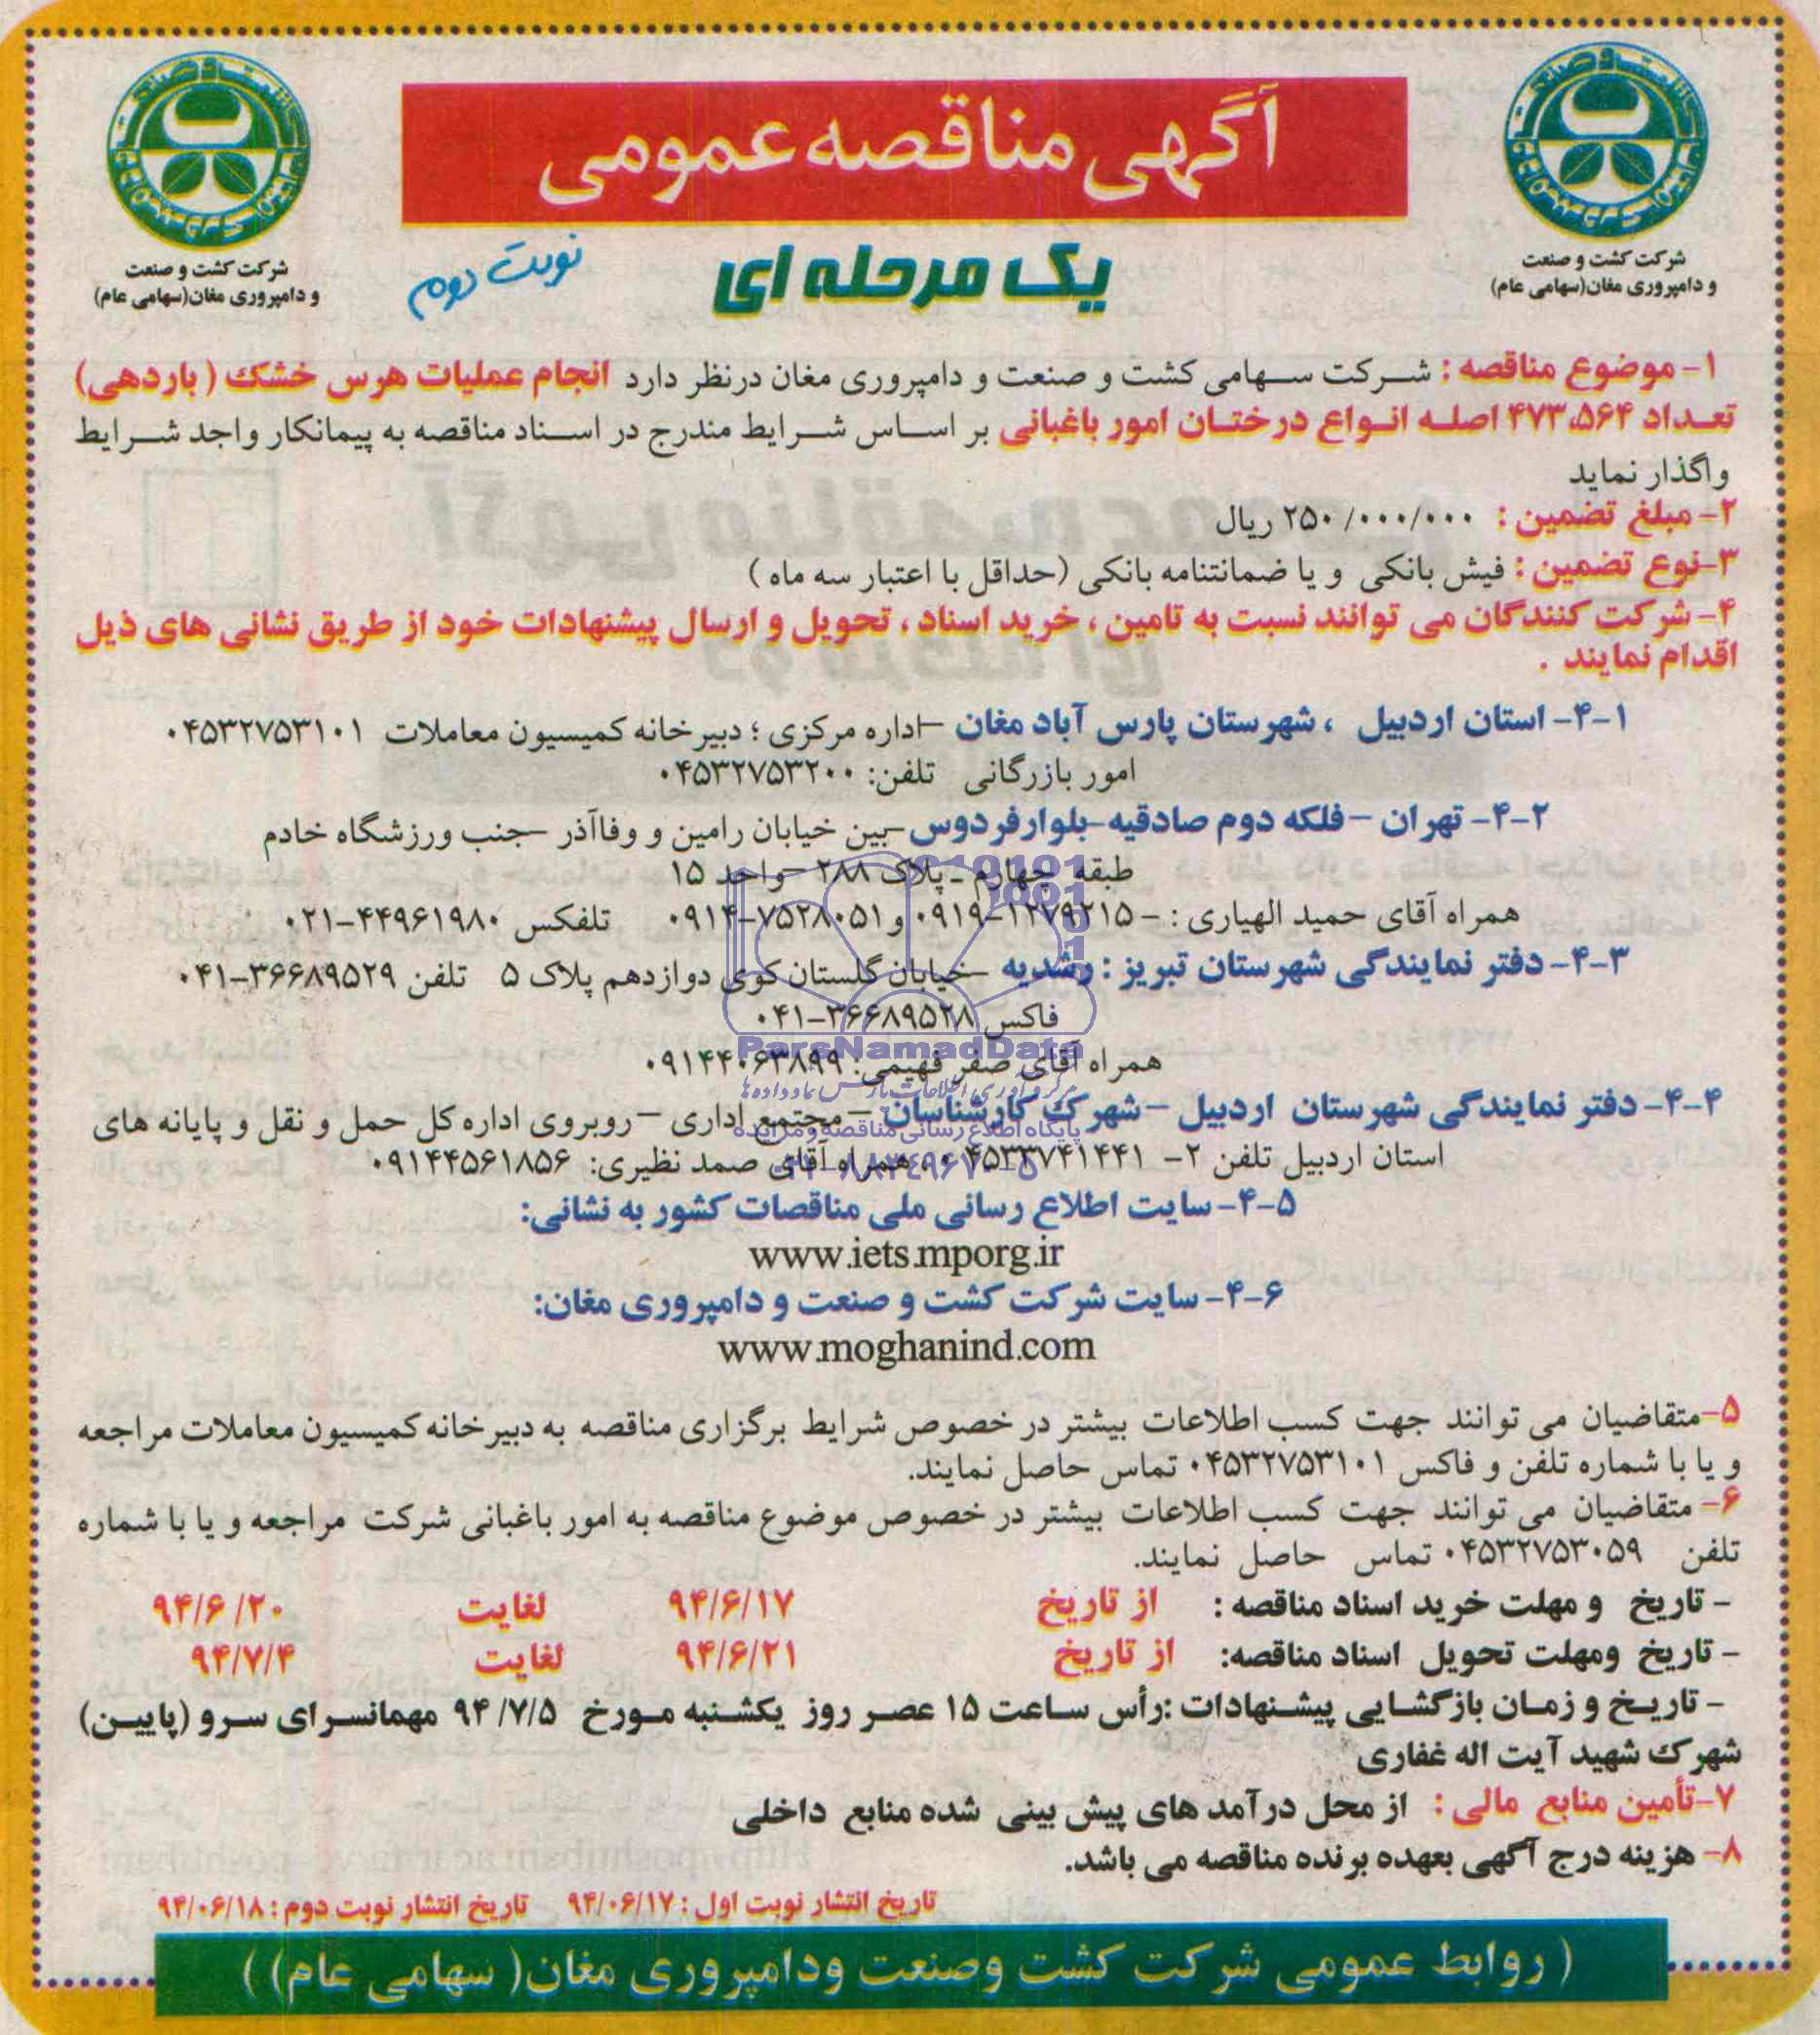 آگهی مناقصه عمومی
یک مرحله ای
نوبت دوم
شرکت کشت و صنعت
و دامپروری مغان(سهامی عام)
شرکت کشت و صنعت
و دامپروری مغان(سهامی عام)
۱- موضوع مناقصه : شرکت سهامی کشت و صنعت و دامپروری مغان درنظر دارد انجام عملیات هرس خشک ( باردهی)
تعداد ۴۷۳،۵۶۴ اصله انواع درختان امور باغبانی بر اساس شرایط مندرج در اسناد مناقصه به پیمانکار واجد شرایط
واگذار نماید
۲- مبلغ تضمین : ۲۵۰/۰۰۰/۰۰۰ ریال
۳-نوع تضمین : فیش بانکی و یا ضمانتنامه بانکی (حداقل با اعتبار سه ماه )
۴- شرکت کنندگان می توانند نسبت به تامین ، خرید اسناد ، تحویل و ارسال پیشنهادات خود از طریق نشانی های ذیل
اقدام نمایند .
۴-۱- استان اردبیل ، شهرستان پارس آباد مغان –اداره مرکزی ؛ دبیرخانه کمیسیون معاملات ۰۴۵۳۲۷۵۳۱۰۱
امور بازرگانی تلفن: ۰۴۵۳۲۷۵۳۲۰۰
۴-۲- تهران –فلکه دوم صادقیه–بلوارفردوس–بین خیابان رامین و وفاآذر –جنب ورزشگاه خادم
طبقه چهارم - پلاک ۲۸۸ –واحد ۱۵
همراه آقای حمید الهیاری : – ۰۹۱۹-۱۲۷۹۲۱۵ و ۰۹۱۴-۷۵۲۸۰۵۱ تلفکس ۰۲۱-۴۴۹۶۱۹۸۰
۴-۳- دفتر نمایندگی شهرستان تبریز : رشدیه –خیابان گلستان کوی دوازدهم پلاک ۵ تلفن ۰۴۱-۳۶۶۸۹۵۲۹
فاکس ۰۴۱-۳۶۶۸۹۵۲۸
همراه آقای صفر فهیمی: ۰۹۱۴۴۰۶۳۸۹۹
ParsNamadData
پایگاه اطلاع رسانی مناقصه و مزایده
۴-۴- دفتر نمایندگی شهرستان اردبیل –شهرک کارشناسان –مجتمع اداری –روبروی اداره کل حمل و نقل و پایانه های
استان اردبیل تلفن ۲- ۰۴۵۳۳۷۴۱۴۴۱ همراه آقای صمد نظیری: ۰۹۱۴۴۵۶۱۸۵۶
۴-۵- سایت اطلاع رسانی ملی مناقصات کشور به نشانی:
www.iets.mporg.ir
۴-۶- سایت شرکت کشت و صنعت و دامپروری مغان:
www.moghanind.com
۵-متقاضیان می توانند جهت کسب اطلاعات بیشتر در خصوص شرایط برگزاری مناقصه به دبیرخانه کمیسیون معاملات مراجعه
و یا با شماره تلفن و فاکس ۰۴۵۳۲۷۵۳۱۰۱ تماس حاصل نمایند.
۶- متقاضیان می توانند جهت کسب اطلاعات بیشتر در خصوص موضوع مناقصه به امور باغبانی شرکت مراجعه و یا با شماره
تلفن ۰۴۵۳۲۷۵۳۰۵۹ تماس حاصل نمایند.
- تاریخ و مهلت خرید اسناد مناقصه : از تاریخ ۹۴/۶/۱۷ لغایت ۹۴/۶/۲۰
- تاریخ ومهلت تحویل اسناد مناقصه: از تاریخ ۹۴/۶/۲۱ لغایت ۹۴/۷/۴
- تاریخ و زمان بازگشایی پیشنهادات :رأس ساعت ۱۵ عصر روز یکشنبه مورخ ۹۴/۷/۵ مهمانسرای سرو (پایین)
شهرک شهید آیت اله غفاری
۷-تأمین منابع مالی : از محل درآمد های پیش بینی شده منابع داخلی
۸- هزینه درج آگهی بعهده برنده مناقصه می باشد.
تاریخ انتشار نوبت اول : ۹۴/۰۶/۱۷ تاریخ انتشار نوبت دوم : ۹۴/۰۶/۱۸
( روابط عمومی شرکت کشت وصنعت ودامپروری مغان( سهامی عام) )